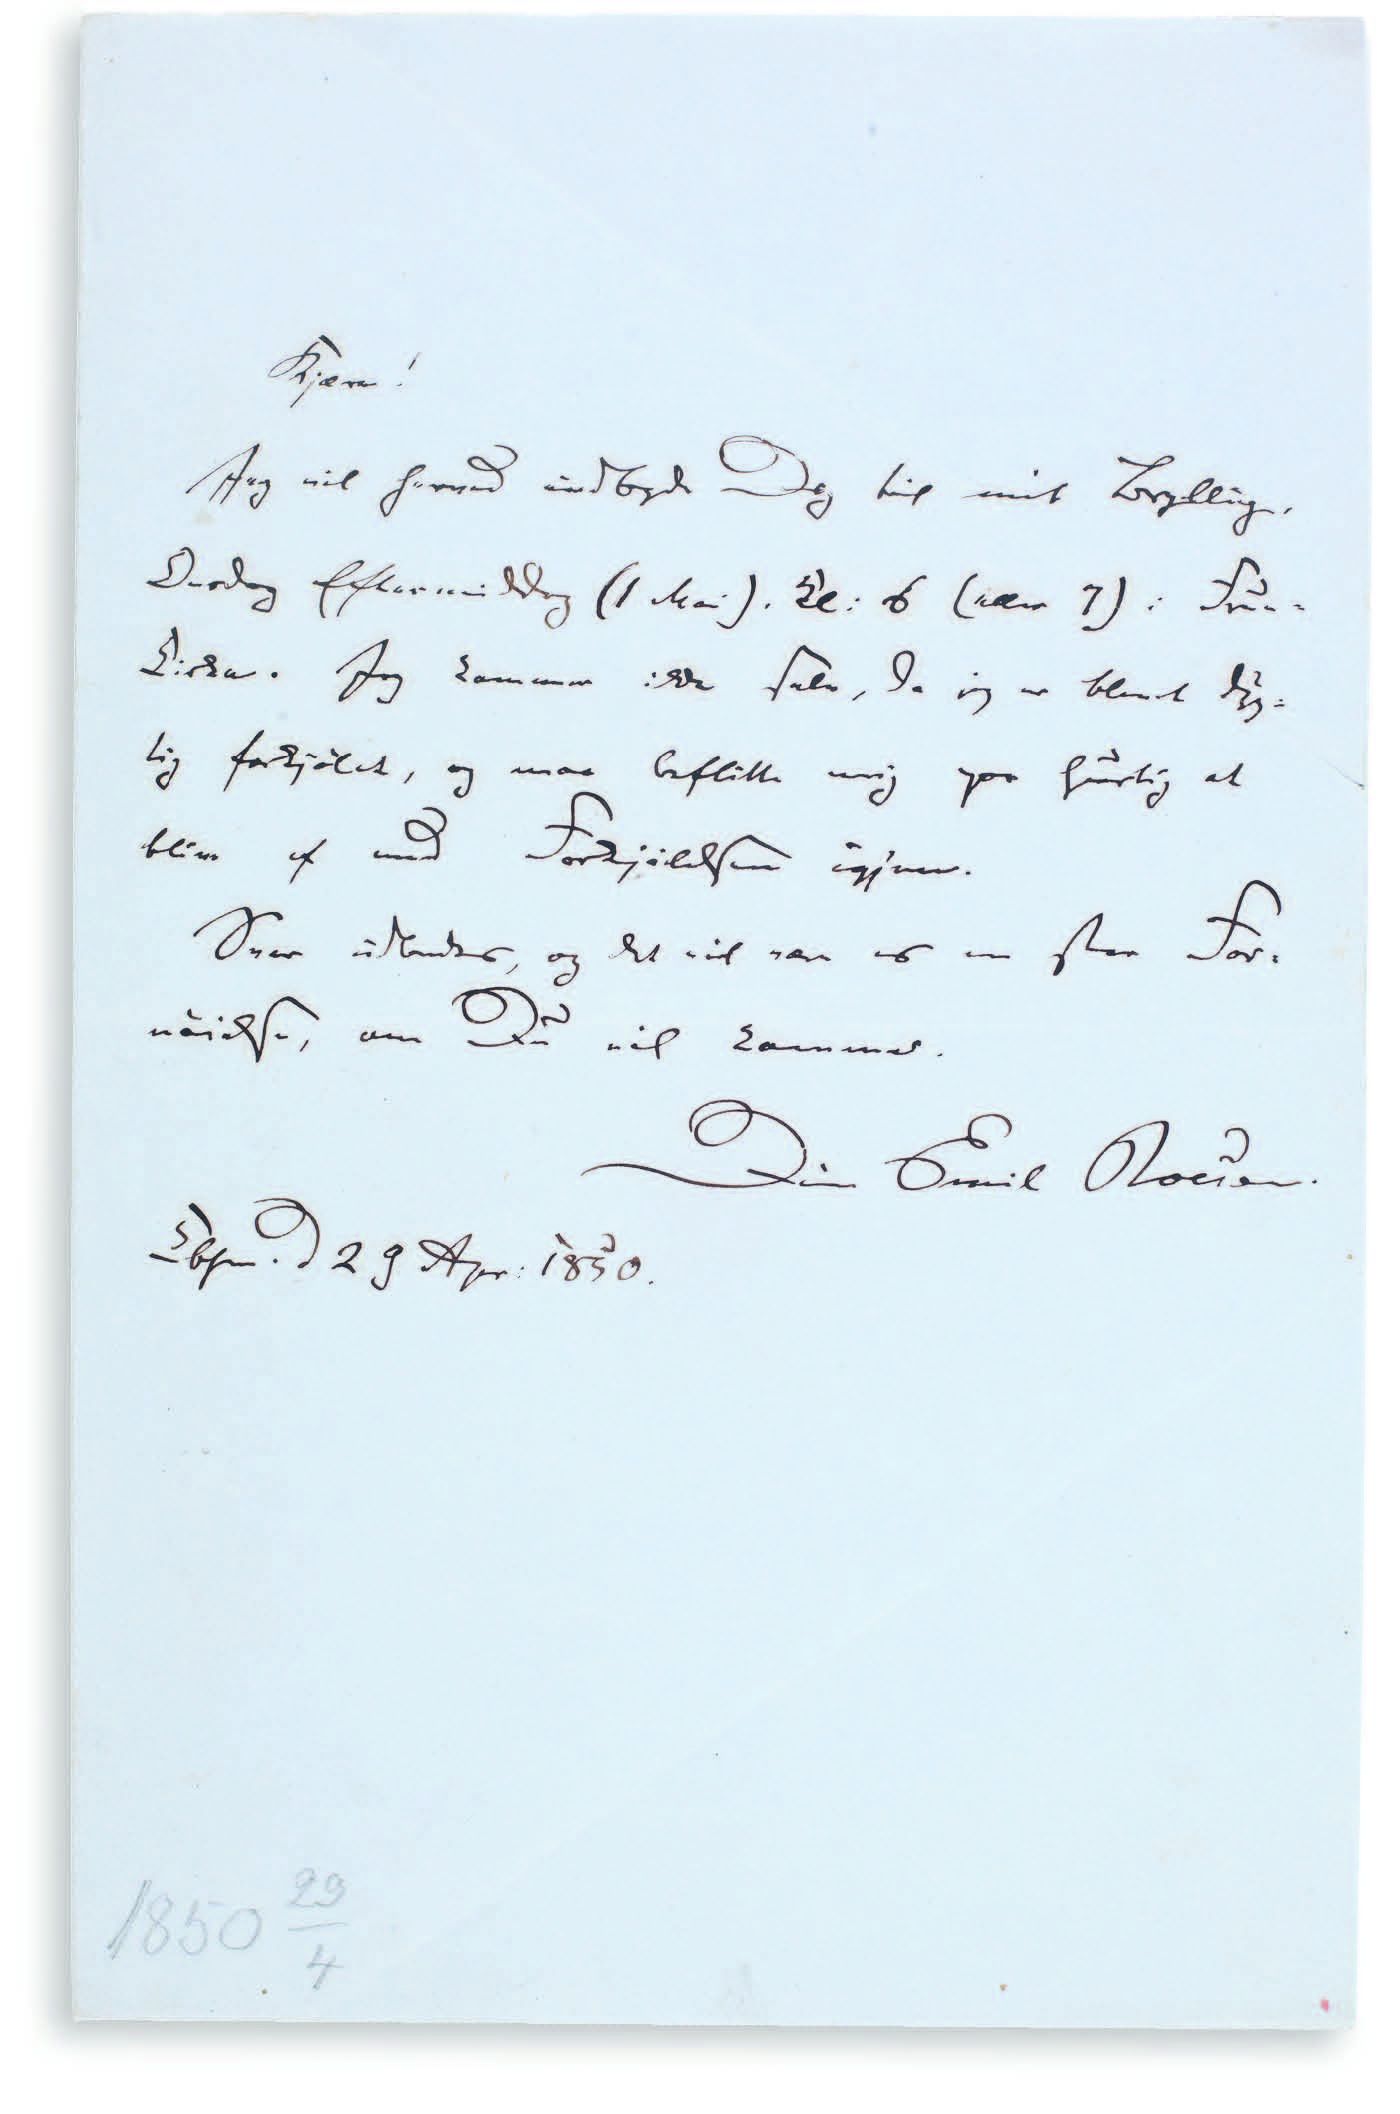 Kjære!
Jeg vil herved indbyde Dig til mit Bryllup,
Onsdag Eftermiddag (1 Mai). Kl: 6 (nær 7) i Frue-
Kirke. Jeg kommer ikke selv, da jeg er blevet dyg-
tig forkjølet, og maa beflitte mig paa hurtig at
blive af med Forkjølelsen igjen.
Svar udbedes, og det vil være os en stor For-
nøielse, om Du vil komme.
Din Emil Boesen.
Kbhn. d 29 Apr: 1850.
1850 29/4